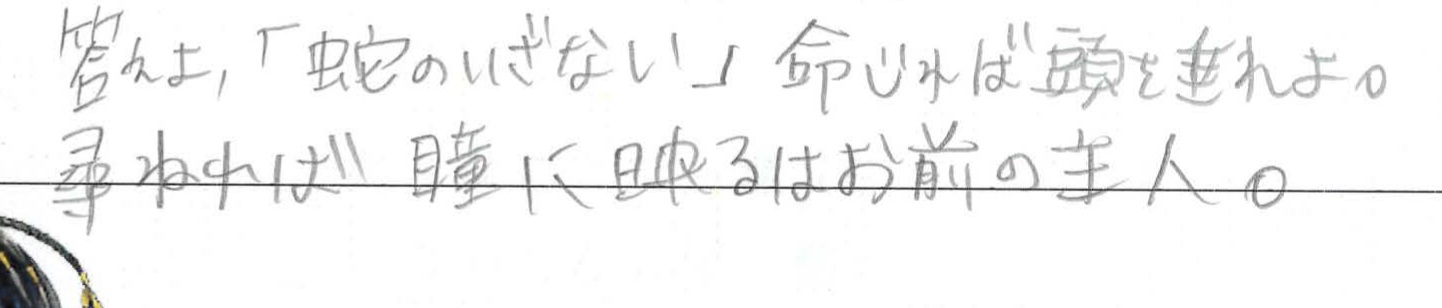 答えよ,「蛇のいざない」命じれば頭を垂れよ。
尋ねれば瞳に映るはお前の主人。